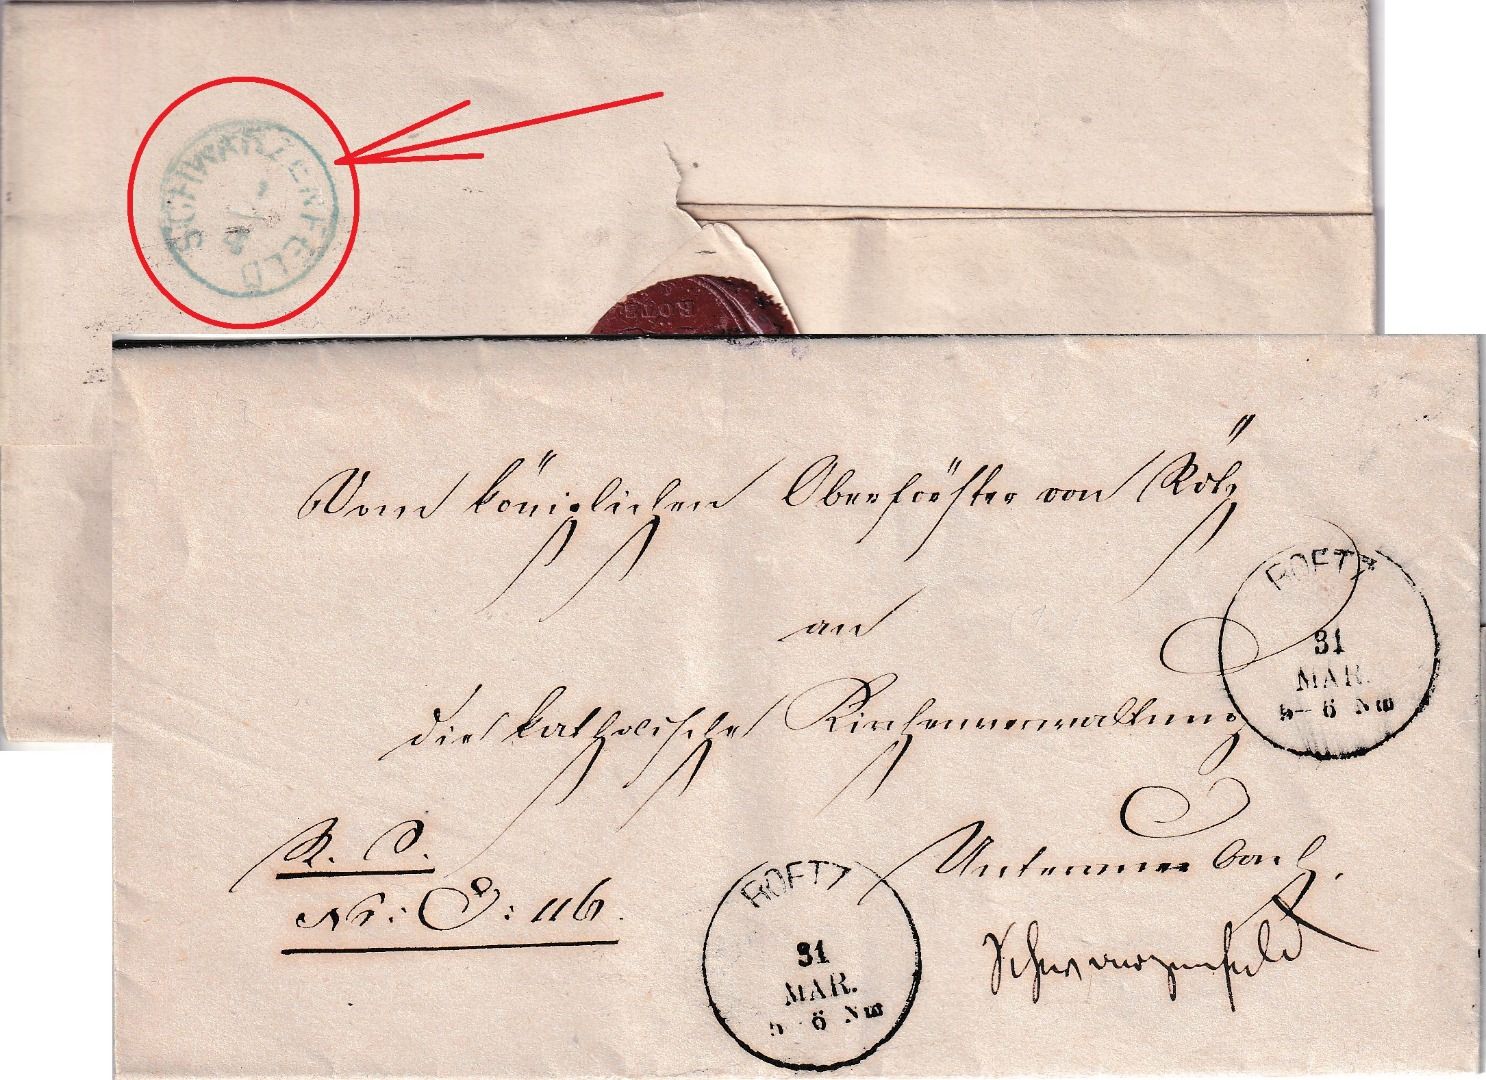 SCHWARZENFELD
RÖTZ
Vom königlichen Oberförster von Rötz
an
die katholische Kirchenverwaltung
Unterauerbach.
Schwarzenfeld
R. S.
Nr: E: 116.
ROETZ
31
MAR.
5-6 Nm
ROETZ
31
MAR.
5-6 Nm